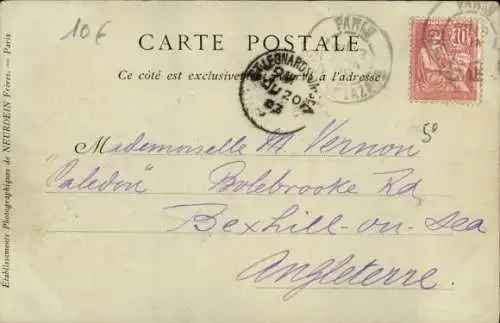 10€
CARTE POSTALE
Ce côté est exclusivement réservé à l'adresse
PARIS
LAZARE
ST LEONARDS-ON-SEA
JU 20
03
10
5e
Mademoiselle M. Vernon
"Caledon" Bolebrooke Rd
Bexhill-on-Sea
Angleterre.
Établissements Photographiques de NEURDEIN Frères. — Paris